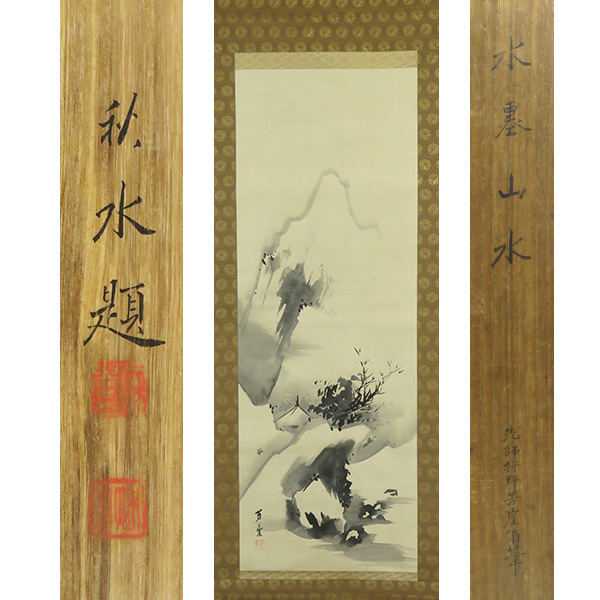 水墨山水
先師狩野芳崖筆
芳崖
秋水題